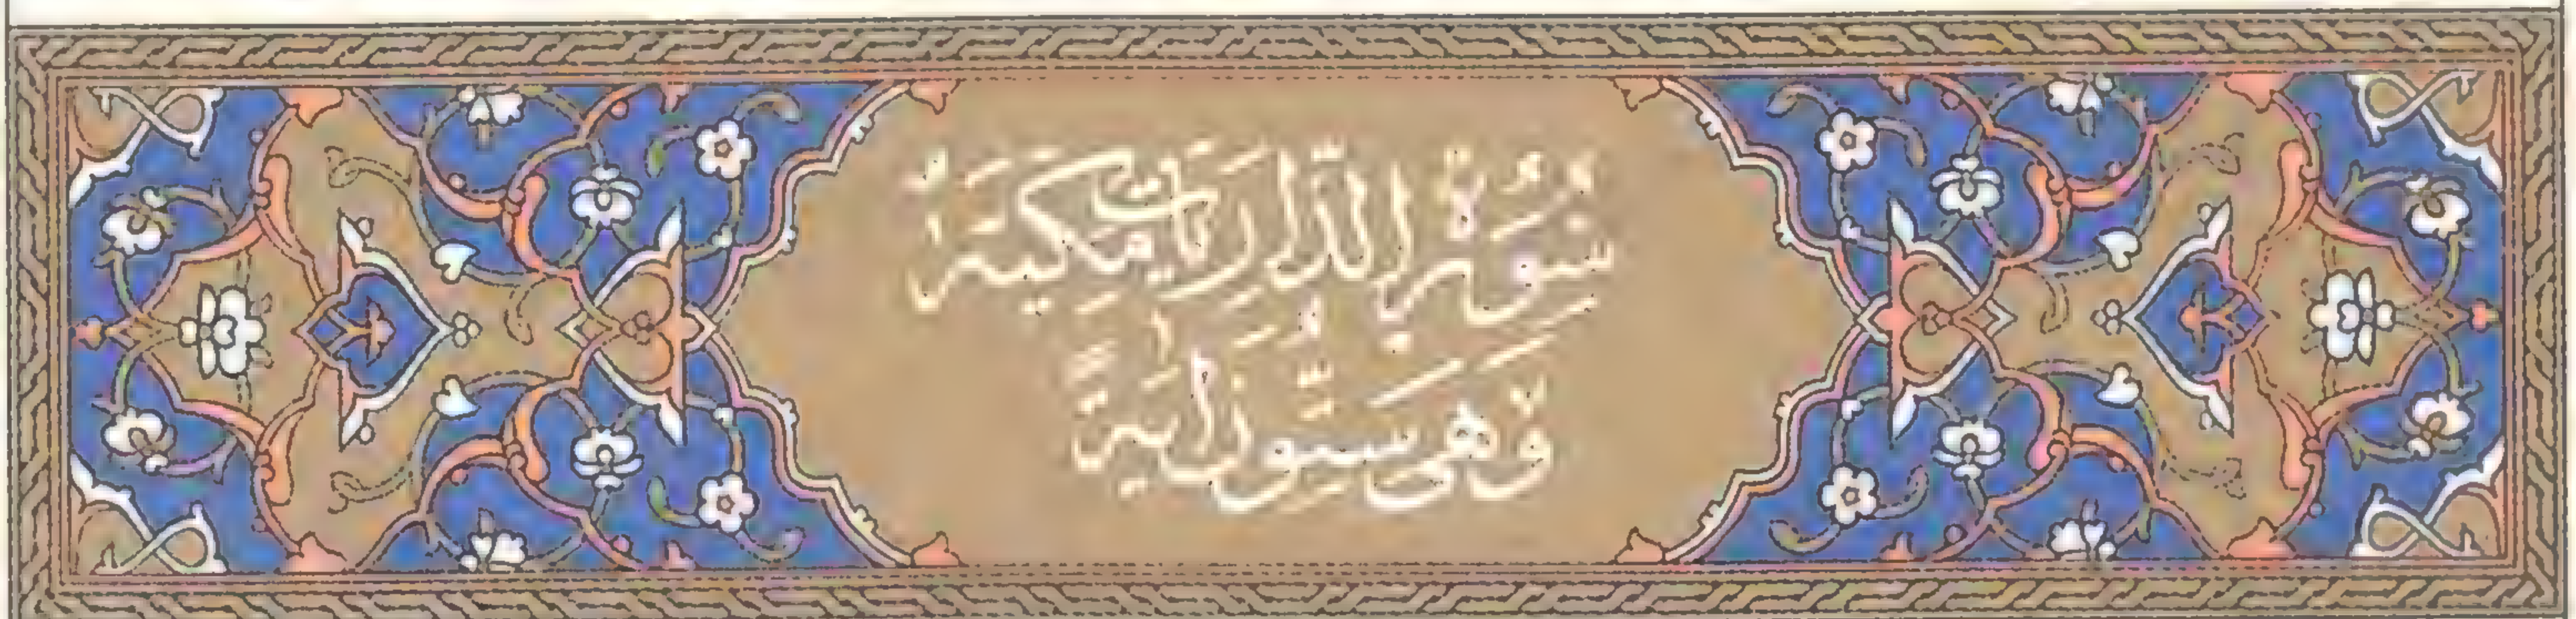 سُورَةُ الذَّارِيَاتِ مَكِّيَّةٌ
وَهِىَ سِتُّونَ اٰيَةً